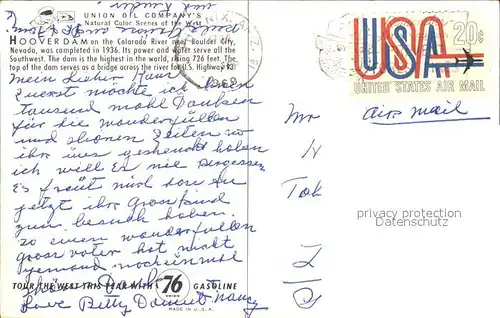 UNION OIL COMPANY'S
Natural Color Scenes of the West
HOOVER DAM on the Colorado River near Boulder City,
Nevada, was completed in 1936. Its power and water serve all the
Southwest. The dam is the highest in the world, rising 726 feet. The
top of the dam serves as a bridge across the river for U.S. Highway 93.
1969
USA 20c
UNITED STATES AIR MAIL
air mail
Mein Lieber Hans
Zuerst möchte ich Ihnen
tausend mahl Danken
für die wonderfullen
und shönen Zeiten wo
ihr uns geshenkt haben
ich will es nie vergessen
Es fräut mich
jetzt ihr Grosskind
zum besuch haben.
so einen wonderfullen
gross voter hat nicht
yemand noch einmal
TOUR THE WEST THIS YEAR WITH 76 UNION GASOLINE
Love Billy Daniel Nancy
MADE IN U.S.A.
Mr
H
Tok
privacy protection
Datenschutz